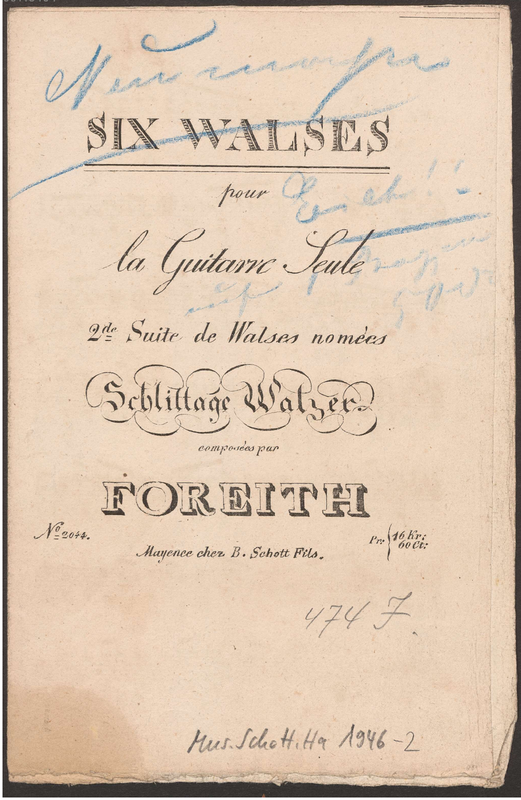 SIX WALSES
pour
la Guitarre Seule
2de Suite de Walses nomées
Schlittage Walzer
composées par
FOREITH
No 2044.
Mayence chez B. Schott Fils.
Pr: { 16 Kr:
60 Ct:
474 F
Mus. Schott. Ha 1946-2